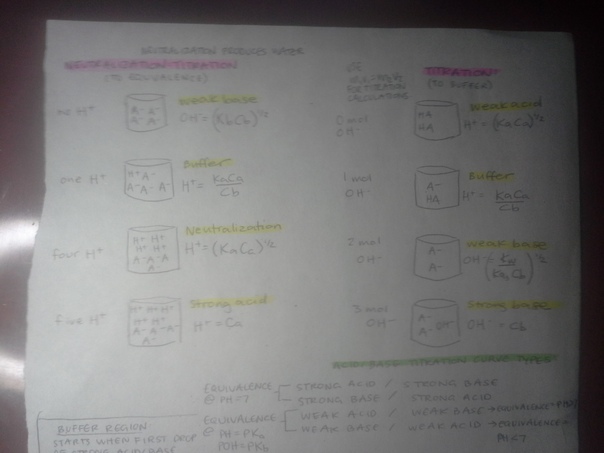 NEUTRALIZATION PRODUCES WATER
NEUTRALIZATION TITRATION
(TO EQUIVALENCE)
no H⁺
A⁻ A⁻
A⁻ A⁻
weak base
OH⁻ = (KbCb)^1/2
one H⁺
H⁺ A⁻
A⁻ A⁻ A⁻
Buffer
H⁺ = KaCa
Cb
four H⁺
H⁺ H⁺
H⁺ H⁺
A⁻ A⁻ A⁻
A⁻
Neutralization
H⁺ = (KaCa)^1/2
five H⁺
H⁺ H⁺ H⁺
H⁺ H⁺
A⁻ A⁻ A⁻
A⁻
Strong acid
H⁺ = Ca
FOR TITRATION
CALCULATIONS
TITRATION
(TO BUFFER)
0 mol
OH⁻
HA
HA
weak acid
H⁺ = (KaCa)^1/2
1 mol
OH⁻
A⁻
HA
Buffer
H⁺ = KaCa
Cb
2 mol
OH⁻
A⁻
A⁻
weak base
OH⁻
3 mol
OH⁻
A⁻
A⁻ OH⁻
Strong base
OH⁻ = Cb
ACID/BASE TITRATION CURVE TYPES
EQUIVALENCE
@ PH=7
STRONG ACID / STRONG BASE
STRONG BASE / STRONG ACID
EQUIVALENCE
@ PH=PKa
POH=PKb
WEAK ACID / WEAK BASE → EQUIVALENCE
WEAK BASE / WEAK ACID → EQUIVALENCE
PH<7
BUFFER REGION
STARTS WHEN FIRST DROP
OF STRONG ACID/BASE